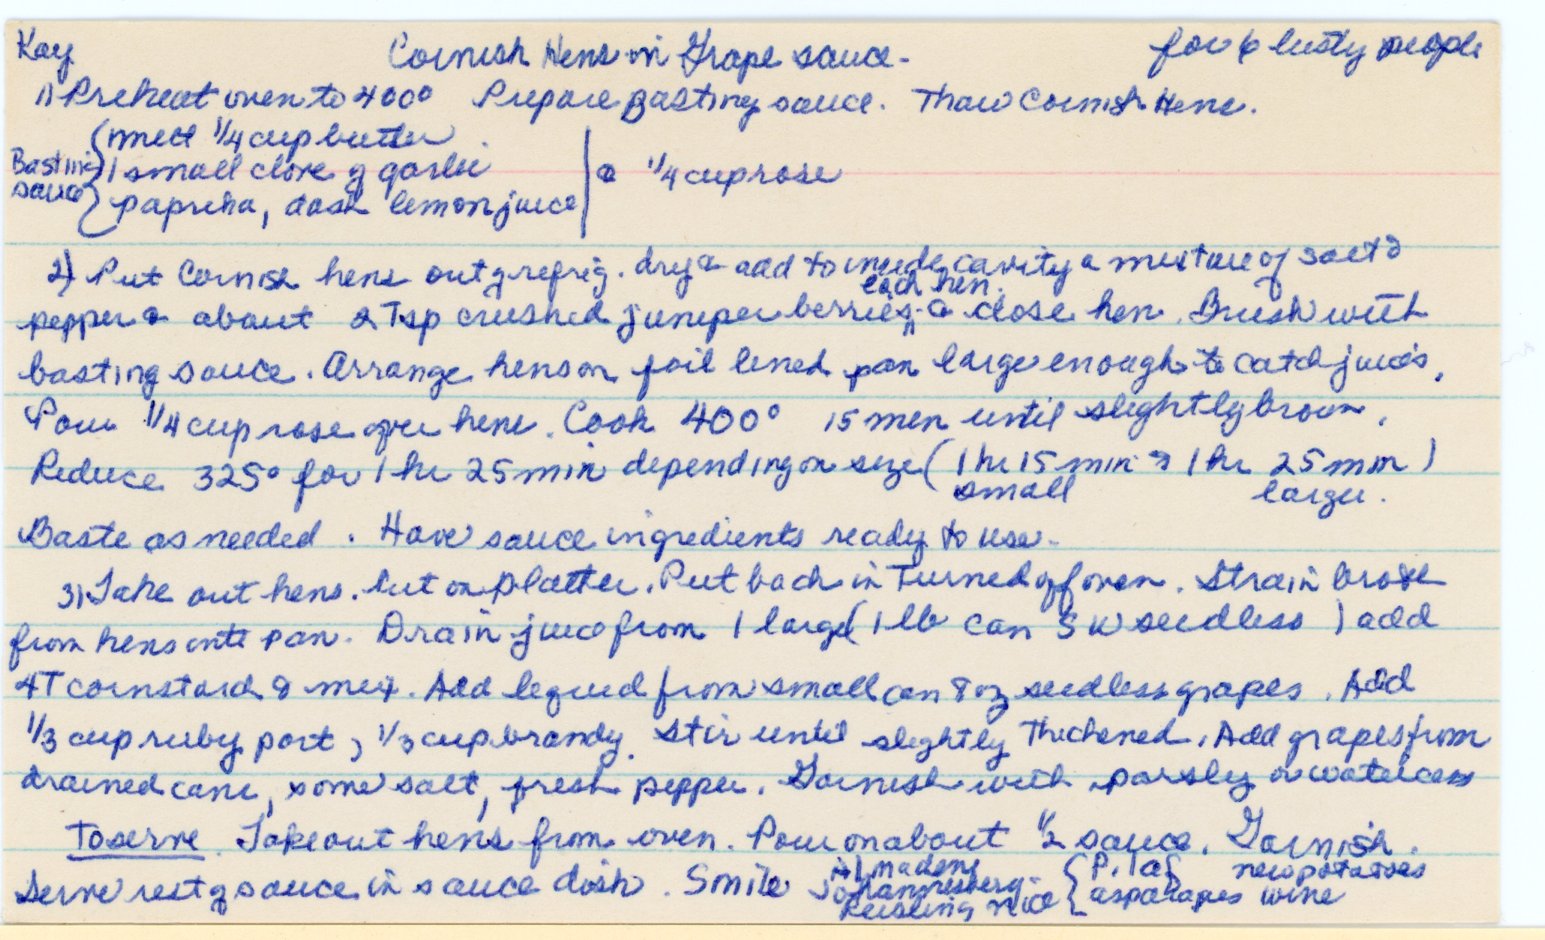 Kay Cornish Hens in Grape sauce. for 6 lusty people
1) Preheat oven to 400° Prepare Basting sauce. Thaw Cornish Hens.
Basting sauce { melt 1/4 cup butter
1 small clove of garlic
paprika, dash lemon juice | & 1/4 cup rose
2) Put Cornish hens out of refrig. dry & add to inside cavity a mixture of salt &
each hen.
pepper & about 2 Tsp crushed juniper berries, & close hen. Brush with
basting sauce. Arrange hens on foil lined pan large enough to catch juices.
Pour 1/4 cup rose over hens. Cook 400° 15 min until slightly brown.
Reduce 325° for 1 hr 25 min depending on size (1 hr 15 min & 1 hr 25 min)
small large.
Baste as needed. Have sauce ingredients ready to use.
3) Take out hens. Put on platter. Put back in Turned off oven. Strain
from hens into pan. Drain juice from 1 large (1 lb can S W seedless) add
4T cornstarch & mix. Add liquid from small can 8 oz seedless grapes. Add
1/3 cup ruby port, 1/3 cup brandy. Stir until slightly Thickened. Add grapes from
drained cans, some salt, fresh pepper. Garnish with parsley or watercress
To serve. Take out hens from oven. Pour on about 1/2 sauce. Garnish.
Serve rest of sauce in sauce dish. Smile Almadens { Pilaf new potatoes
Johannesberg { asparagus wine
Reisling nice